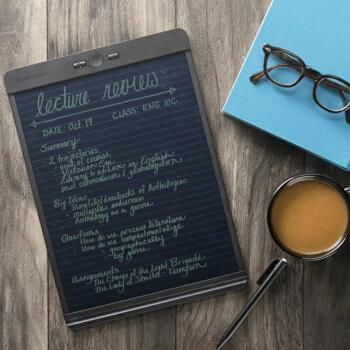 lecture review
DATE: Oct. 19
CLASS: ENG 10C
Summary
- 2 trajectories
- goals of course
- Victorian Era
- Literary tradition in English
post colonialism / globalization
Big Ideas
- Benefits/drawbacks of Anthologies
- multiple audiences
- Anthology as a genre
Questions
- How do we process literature
- How do we compartmentalize
- geographically
- by genre
Assignments
- The Charge of the Light Brigade
- The Lady of Shallot - Tennyson